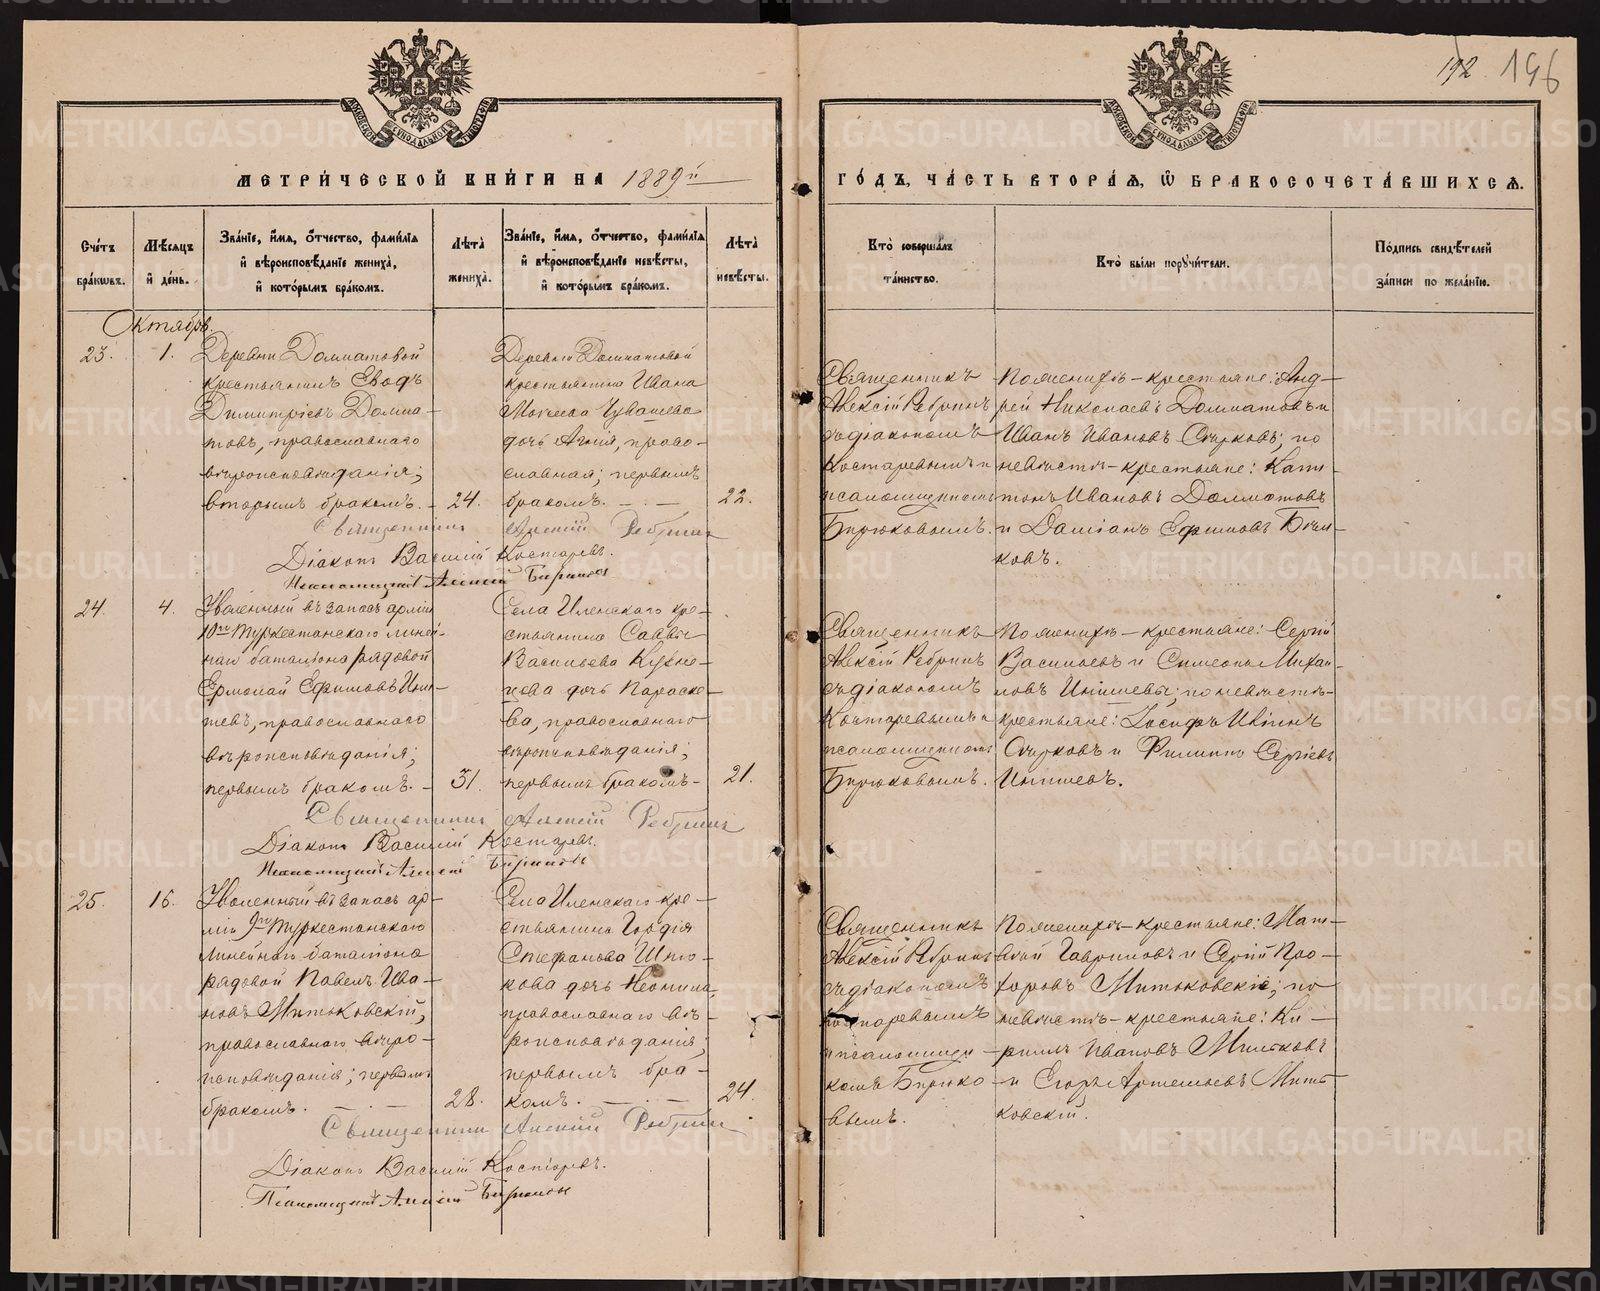 192 196
МЕТРИЧЕСКОЙ КНИГИ НА 1889й
ГОДЪ, ЧАСТЬ ВТОРАЯ, Ѡ БРАКОСОЧЕТАВШИХСЯ.
Счетъ браковъ.
Мѣсяцъ и день.
Званіе, имя, отчество, фамилія и вѣроисповѣданіе жениха, и которымъ бракомъ.
Лѣта жениха.
Званіе, имя, отчество, фамилія и вѣроисповѣданіе невѣсты, и которымъ бракомъ.
Лѣта невѣсты.
Кто совершалъ таинство.
Кто были поручители.
Подпись свидѣтелей записи по желанію.
Октябрь.
23. 1.
Деревни Долматовой
крестьянинъ Еводъ
Димитріевъ Долма-
товъ, православнаго
вѣроисповѣданія;
вторымъ бракомъ. - 24.
Деревни Долматовой
крестьянина Ивана
Чувашева
дочь Агнія, право-
славная; первымъ
бракомъ. 22.
Священникъ
Алексій Ребринъ
съ діакономъ
Костаревымъ и
псаломщикомъ
Бирюковымъ.
По женихѣ - крестьяне: Анд-
рей Николаевъ Долматовъ и
Иванъ Ивановъ; по
невѣстѣ - крестьяне:
Ивановъ Долматовъ
и Даміанъ Ефимовъ Бѣли-
ковъ.
Священникъ Алексій Ребринъ
Діаконъ Василій Костаревъ.
Псаломщикъ Алексій Бирюковъ
24. 4.
Уволенный въ запасъ арміи
10го Туркестанскаго линей-
наго баталіона рядовой
Ермолай Ефимовъ
православнаго
вѣроисповѣданія;
первымъ бракомъ. - 31.
Села Иленскаго кре-
стьянина Саввы
Васильева
дочь Параске-
ва, православнаго
вѣроисповѣданія;
первымъ бракомъ - 21.
Священникъ
Алексій Ребринъ
съ діакономъ
Костаревымъ и
псаломщикомъ
Бирюковымъ.
По женихѣ - крестьяне: Сергій
Васильевъ и Симеонъ Михаи-
ловъ; по невѣстѣ -
крестьяне: Іосифъ
и Филиппъ Сергіевъ
Священникъ Алексій Ребринъ
Діаконъ Василій Костаревъ.
Псаломщикъ Алексій Бирюковъ
25. 16.
Уволенный въ запасъ ар-
міи 9го Туркестанскаго
линейнаго баталіона
рядовой Павелъ Ива-
новъ Митьковскій,
православнаго вѣро-
исповѣданія; первымъ
бракомъ. 28.
Села Иленскаго кре-
стьянина Гордія
Стефанова
дочь Неонила,
православнаго вѣ-
роисповѣданія;
первымъ бра-
комъ. 24.
Священникъ
Алексій Ребринъ
съ діакономъ
Костаревымъ
и псаломщи-
комъ Бирюко-
вымъ.
По женихѣ - крестьяне: Мат-
вей Гавриловъ и Сергій Про-
хоровъ Митьковскіе; по
невѣстѣ - крестьяне: Ки-
риллъ Ивановъ
и Егоръ Артемьевъ Мить-
ковскій.
Священникъ Алексій Ребринъ
Діаконъ Василій Костаревъ.
Псаломщикъ Алексій Бирюковъ
METRIKI.GASO-URAL.RU